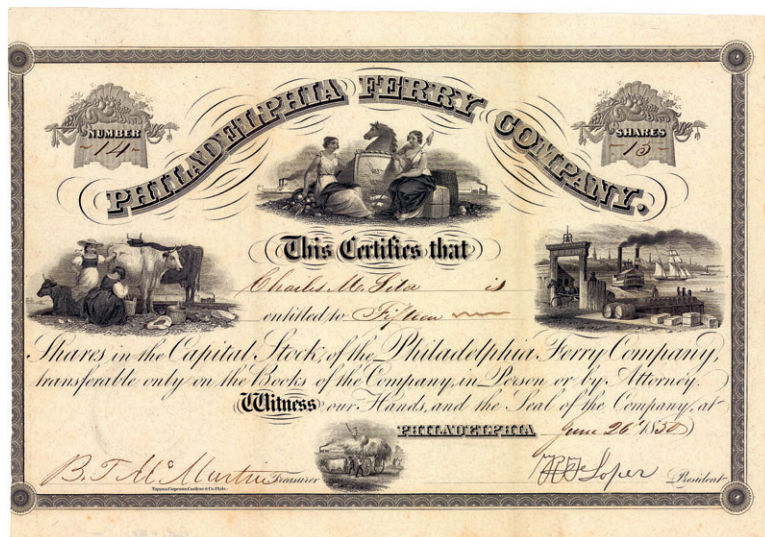 NUMBER
14
PHILADELPHIA FERRY COMPANY.
SHARES
15
This Certifies that
Charles M. is
entitled to Fifteen
Shares in the Capital Stock, of the Philadelphia Ferry Company,
transferable only on the Books of the Company, in Person or by Attorney.
Witness our Hands, and the Seal of the Company, at
PHILADELPHIA June 26 185
B. T. McMurtrie Treasurer
Loper President
Toppan, Carpenter, Casilear & Co. Phila.